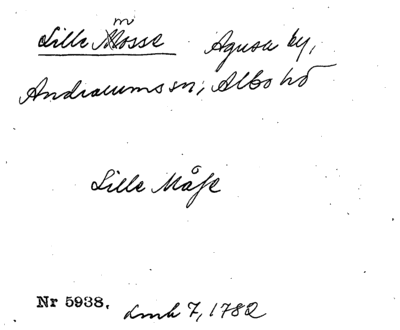 m
Lille Mosse Agusa by,
Andrarums sn, Albo hd
Lille Måse
Nr 5938. Lmk 7, 1782